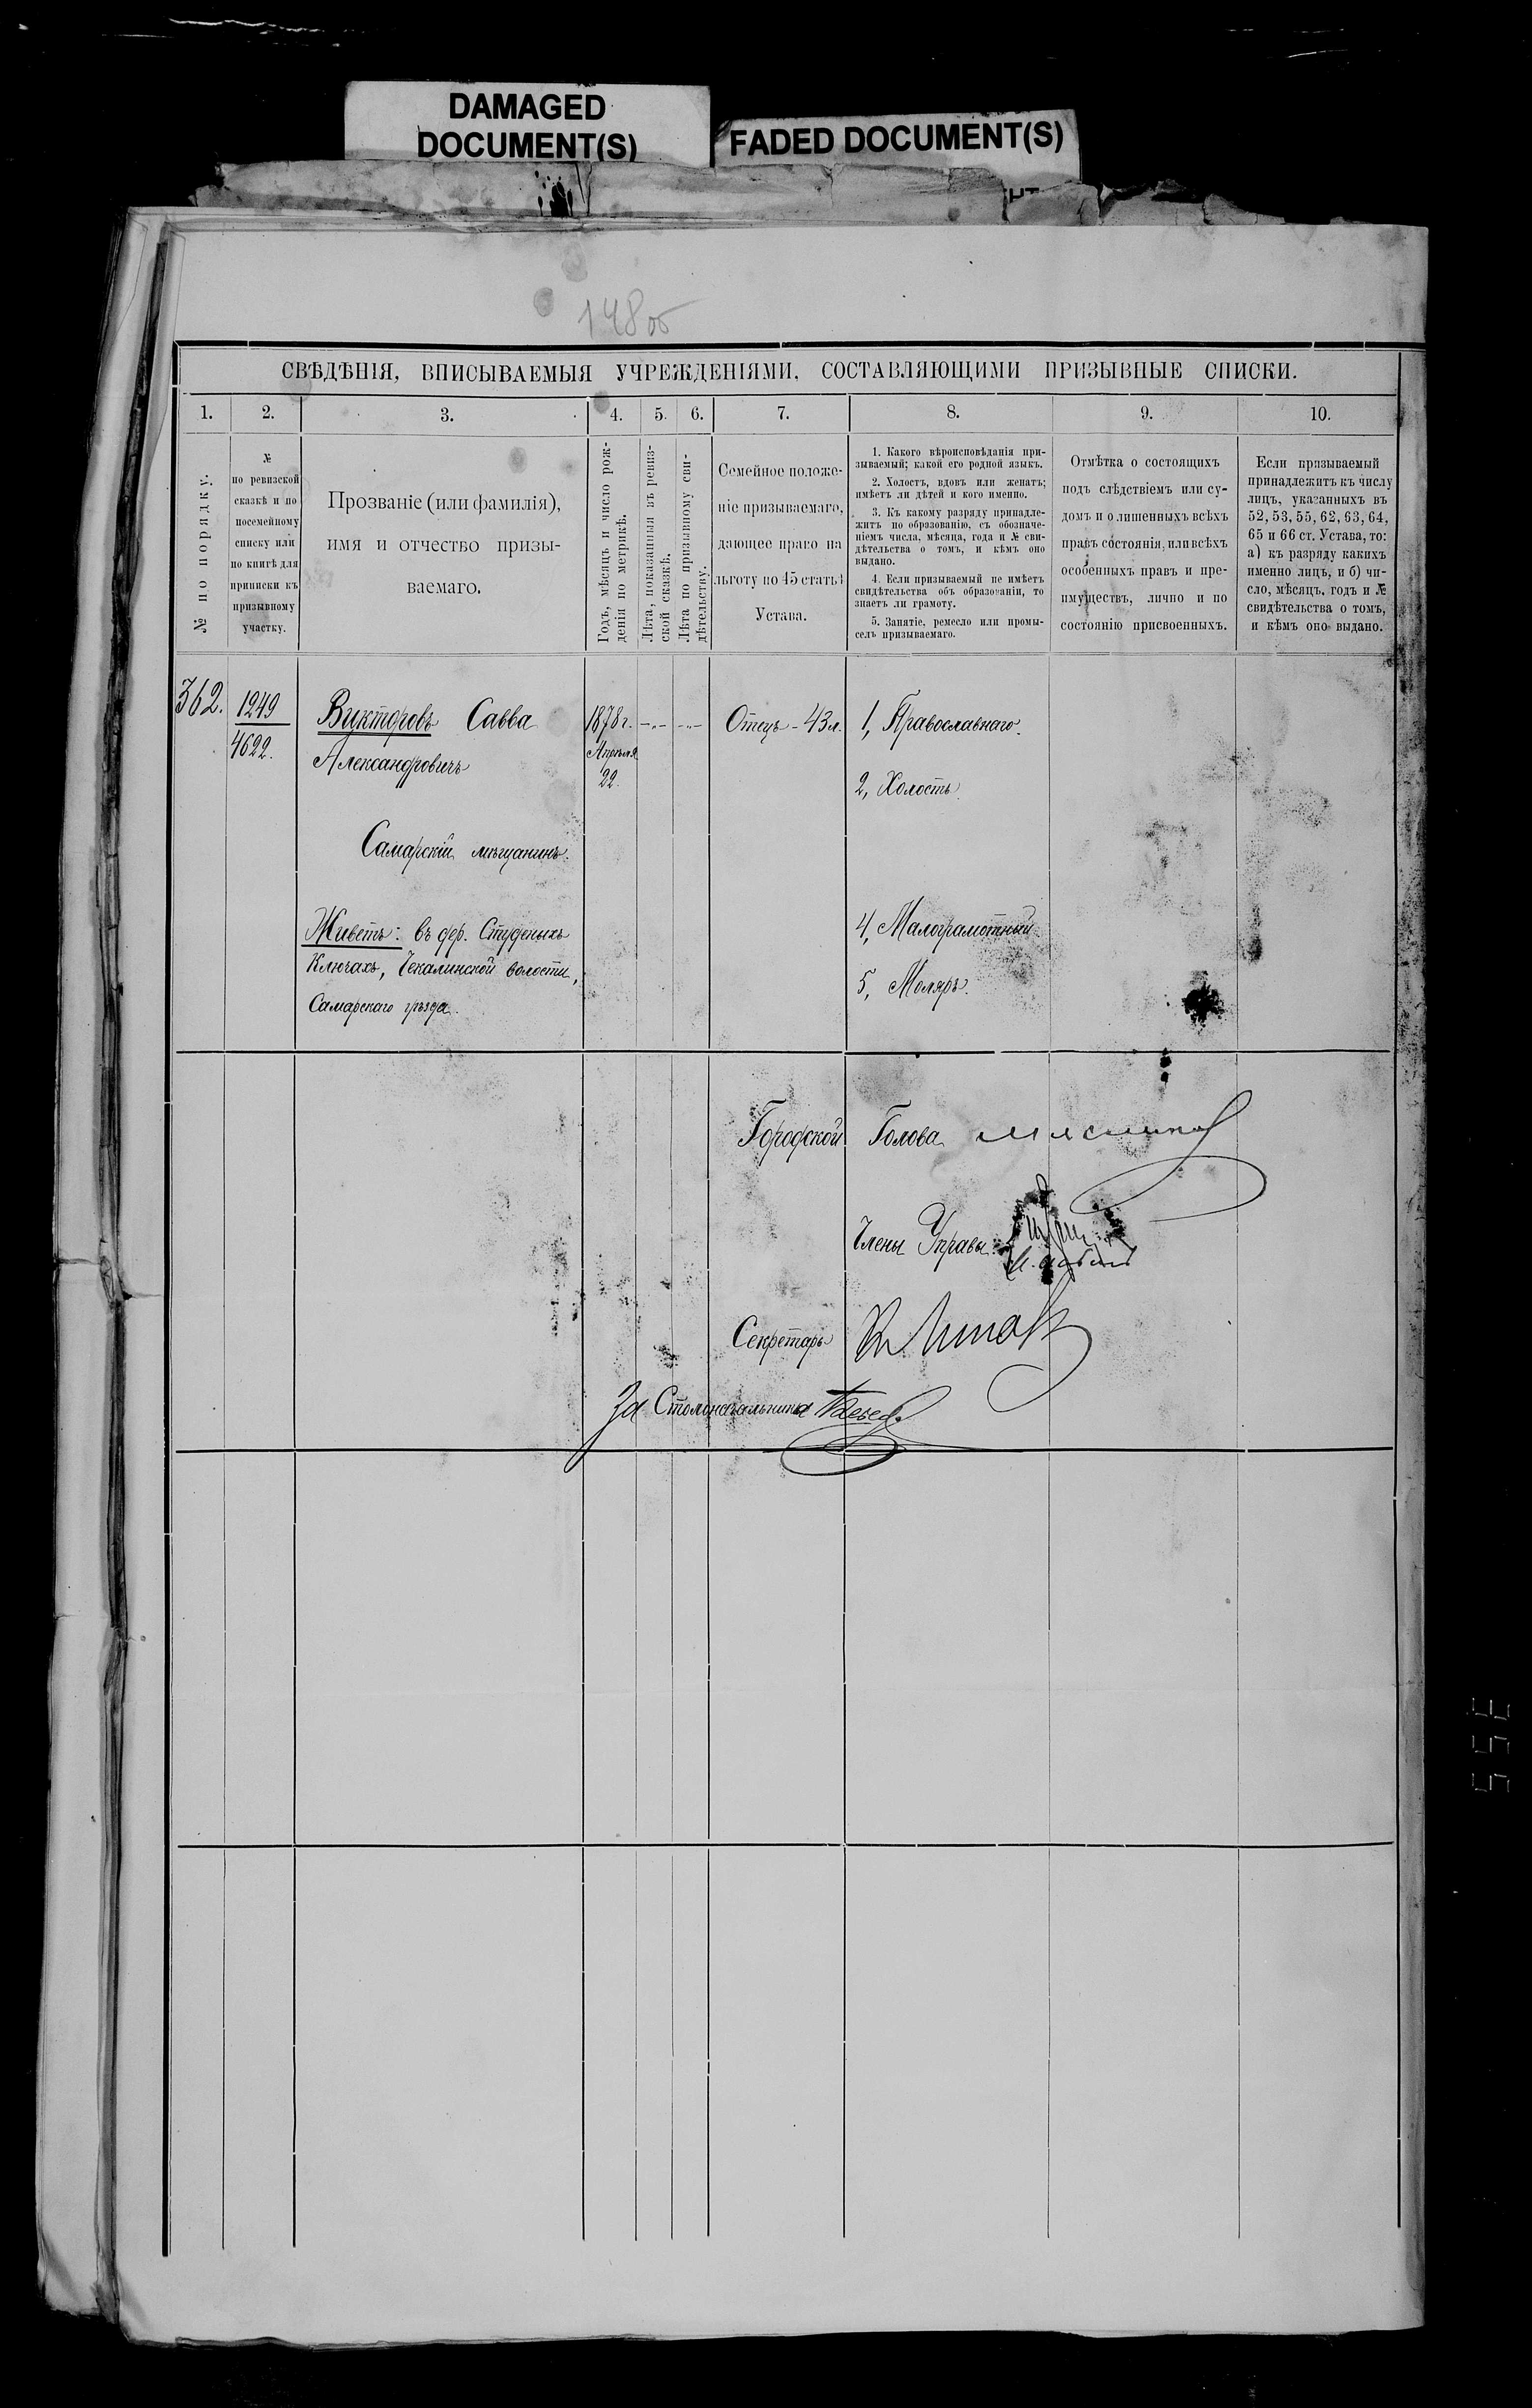 DAMAGED
DOCUMENT(S)
FADED DOCUMENT(S)
148 об
СВѢДѢНІЯ, ВПИСЫВАЕМЫЯ УЧРЕЖДЕНІЯМИ, СОСТАВЛЯЮЩИМИ ПРИЗЫВНЫЕ СПИСКИ.
1. 2. 3. 4. 5. 6. 7. 8. 9. 10.
№ по порядку.
№
по ревизской
сказкѣ и по
посемейному
списку или
по книгѣ для
приписки къ
призывному
участку.
Прозваніе (или фамилія),
имя и отчество призы-
ваемаго.
Годъ, мѣсяцъ и число рож-
денія по метрикѣ.
Лѣта, показанныя въ ревиз-
ской сказкѣ.
Лѣта по призывному сви-
дѣтельству.
Семейное положе-
ніе призываемаго,
дающее право на
льготу по 45 статьѣ
Устава.
1. Какого вѣроисповѣданія при-
зываемый; какой его родной языкъ.
2. Холостъ, вдовъ или женатъ;
имѣетъ ли дѣтей и кого именно.
3. Къ какому разряду принадле-
житъ по образованію, съ обозначе-
ніемъ числа, мѣсяца, года и № сви-
дѣтельства о томъ, и кѣмъ оно
выдано.
4. Если призываемый не имѣетъ
свидѣтельства объ образованіи, то
знаетъ ли грамоту.
5. Занятіе, ремесло или промы-
селъ призываемаго.
Отмѣтка о состоящихъ
подъ слѣдствіемъ или су-
домъ и о лишенныхъ всѣхъ
правъ состоянія, или всѣхъ
особенныхъ правъ и пре-
имуществъ, лично и по
состоянію присвоенныхъ.
Если призываемый
принадлежитъ къ числу
лицъ, указанныхъ въ
52, 53, 55, 62, 63, 64,
65 и 66 ст. Устава, то:
а) къ разряду какихъ
именно лицъ, и б) чи-
сло, мѣсяцъ, годъ и №
свидѣтельства о томъ,
и кѣмъ оно выдано.
362.
1249
4622.
Викторовъ Савва
Александровичъ
Самарскій мѣщанинъ.
Живетъ: въ дер. Студеныхъ
Ключахъ, Чекалинской волости,
Самарскаго уѣзда.
1878 г.
Апрѣля
22.
-"- -"-
Отецъ - 43 л.
1, Православнаго.
2, Холостъ.
4, Малограмотный
5, Маляръ.
Городской Голова
Члены Управы:
Секретарь
За Столоначальника
355